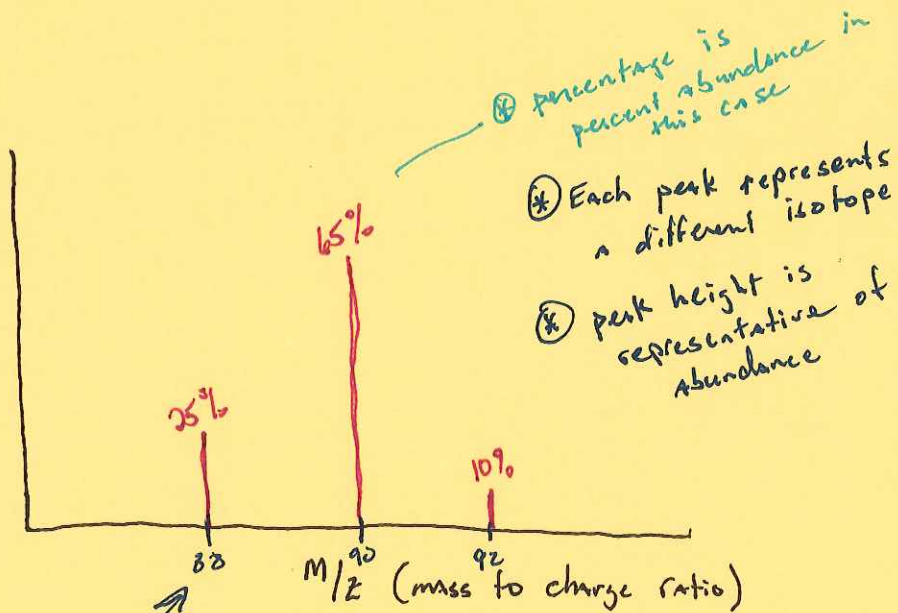 ⊛ percentage is
percent abundance in
this case
⊛ Each peak represents
a different isotope
⊛ peak height is
representative of
abundance
65%
25%
10%
88 90 92
M/Z (mass to charge ratio)